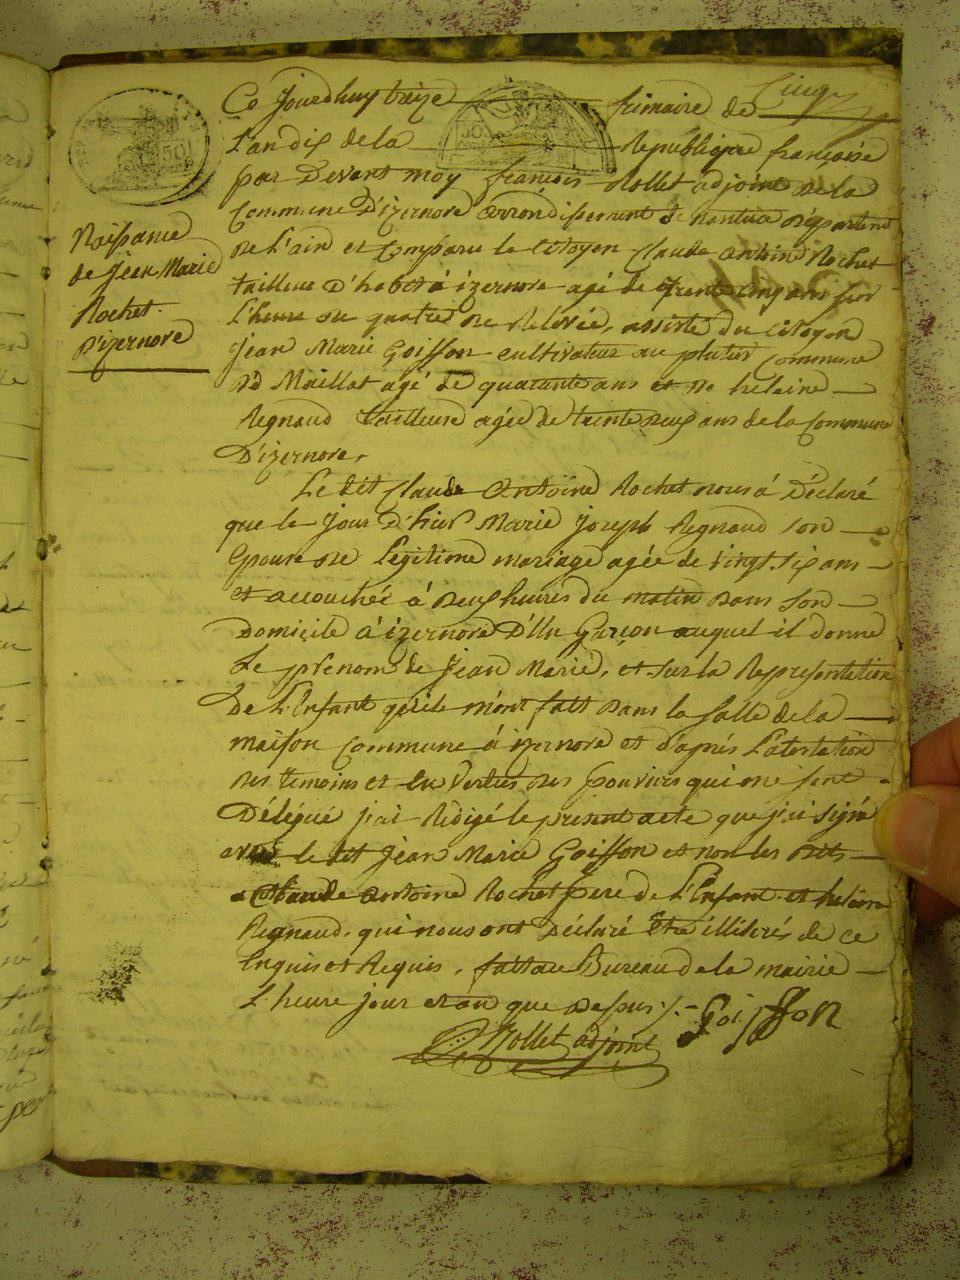 Cinq
Ce Jourdhuy treize frimaire de
L'an dix de la République françoise
par Devant moy françois Rollet adjoint de la
Commune D'izernore arrondissement de nantua Départemt
De L'ain est Comparu le Citoyen Claude Antoine Rochet
tailleur D'habit à izernore agé de trente cinq ans sur
L'heure de quatre de Relevée, assisté du Citoyen
Jean Marie Goiffon cultivateur au commune
De Maillat agé de quarante ans et de helaine
Regnaud tailleuse agée de trente neuf ans de la Commune
D'izernore.
Naissance
de Jean Marie
Rochet
D'izernore
Le dit Claude Antoine Rochet nous à Déclaré
que le Jour D'hier Marie Joseph Regnaud son
Epouse de Légitime mariage agée de vingt six ans
est accouchée à neuf heures du matin Dans son
Domicile à izernore D'Un Garcon auquel il donne
Le prénom de Jean Marie, et sur la Representation
De L'Enfant qu'ils m'ont fait Dans la Salle de la
maison Commune à izernore et d'aprés L'atestation
des temoins et En Vertus des pouvoirs qui me sont
Délégué j'ai Rédigé le présent acte que j'ai signé
avec le dit Jean Marie Goiffon et non les dits
Claude Antoine Rochet pere de L'Enfant et helaine
Regnaud, qui nous ont Déclaré être illiterés de ce
Enquis et Requis, fait au Bureau de la mairie
L'heure jour et an que Dessus ./. Goiffon
Rollet adjoint